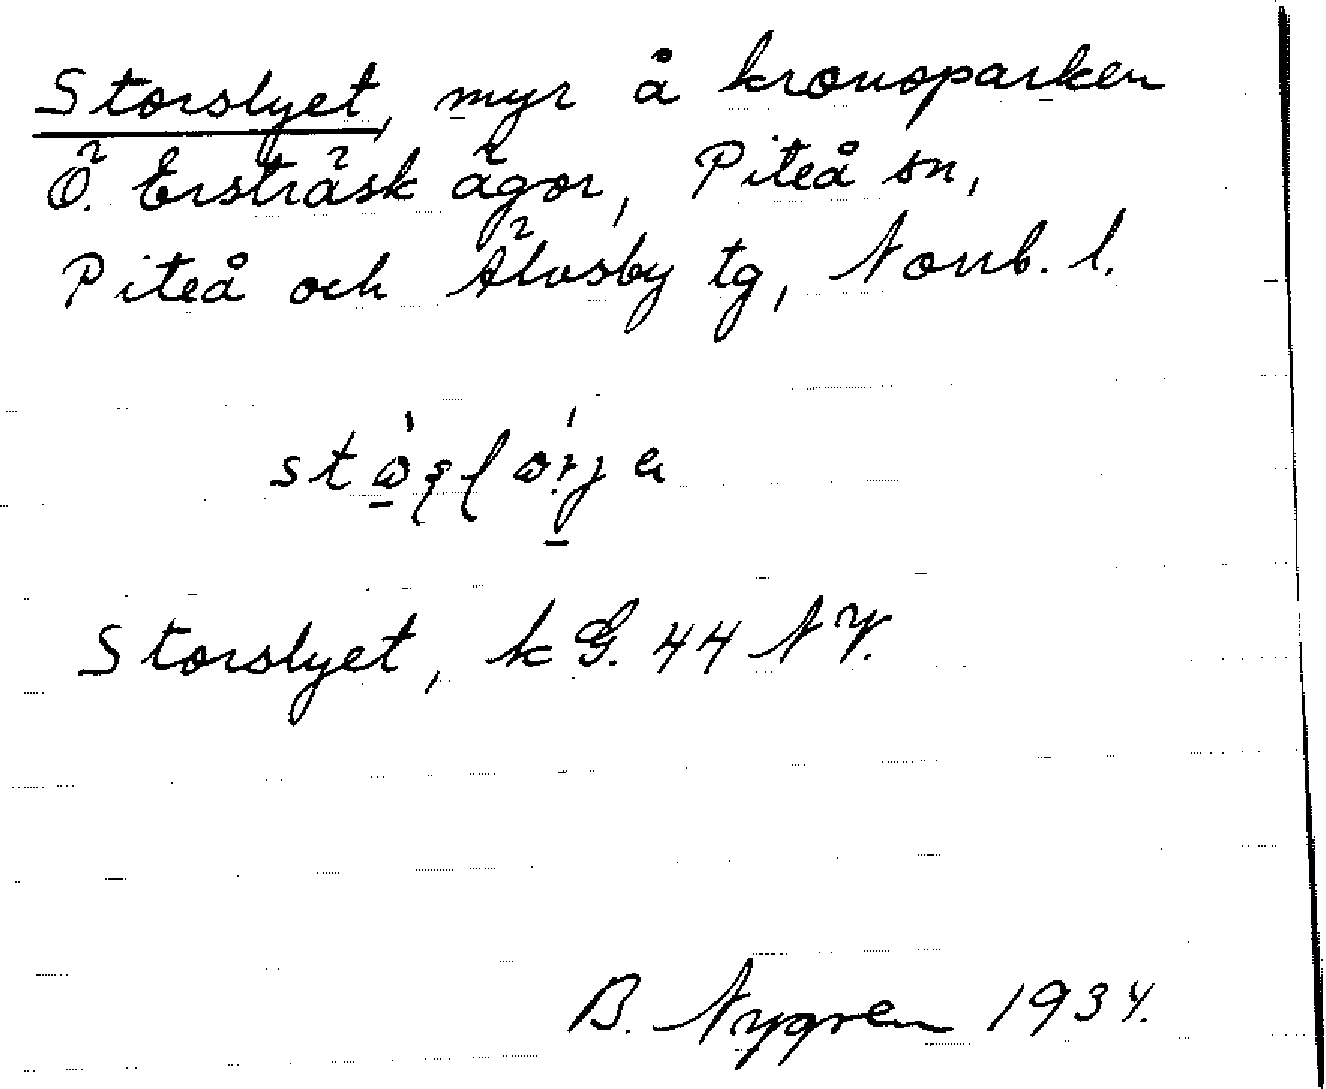 Storslyet, myr å kronoparken
Ö. Ersträsk ägor, Piteå sn,
Piteå och Älvsby tg, Norrb. l.
Storslyet, kG. 44 NV.
B. Nygren 1934.